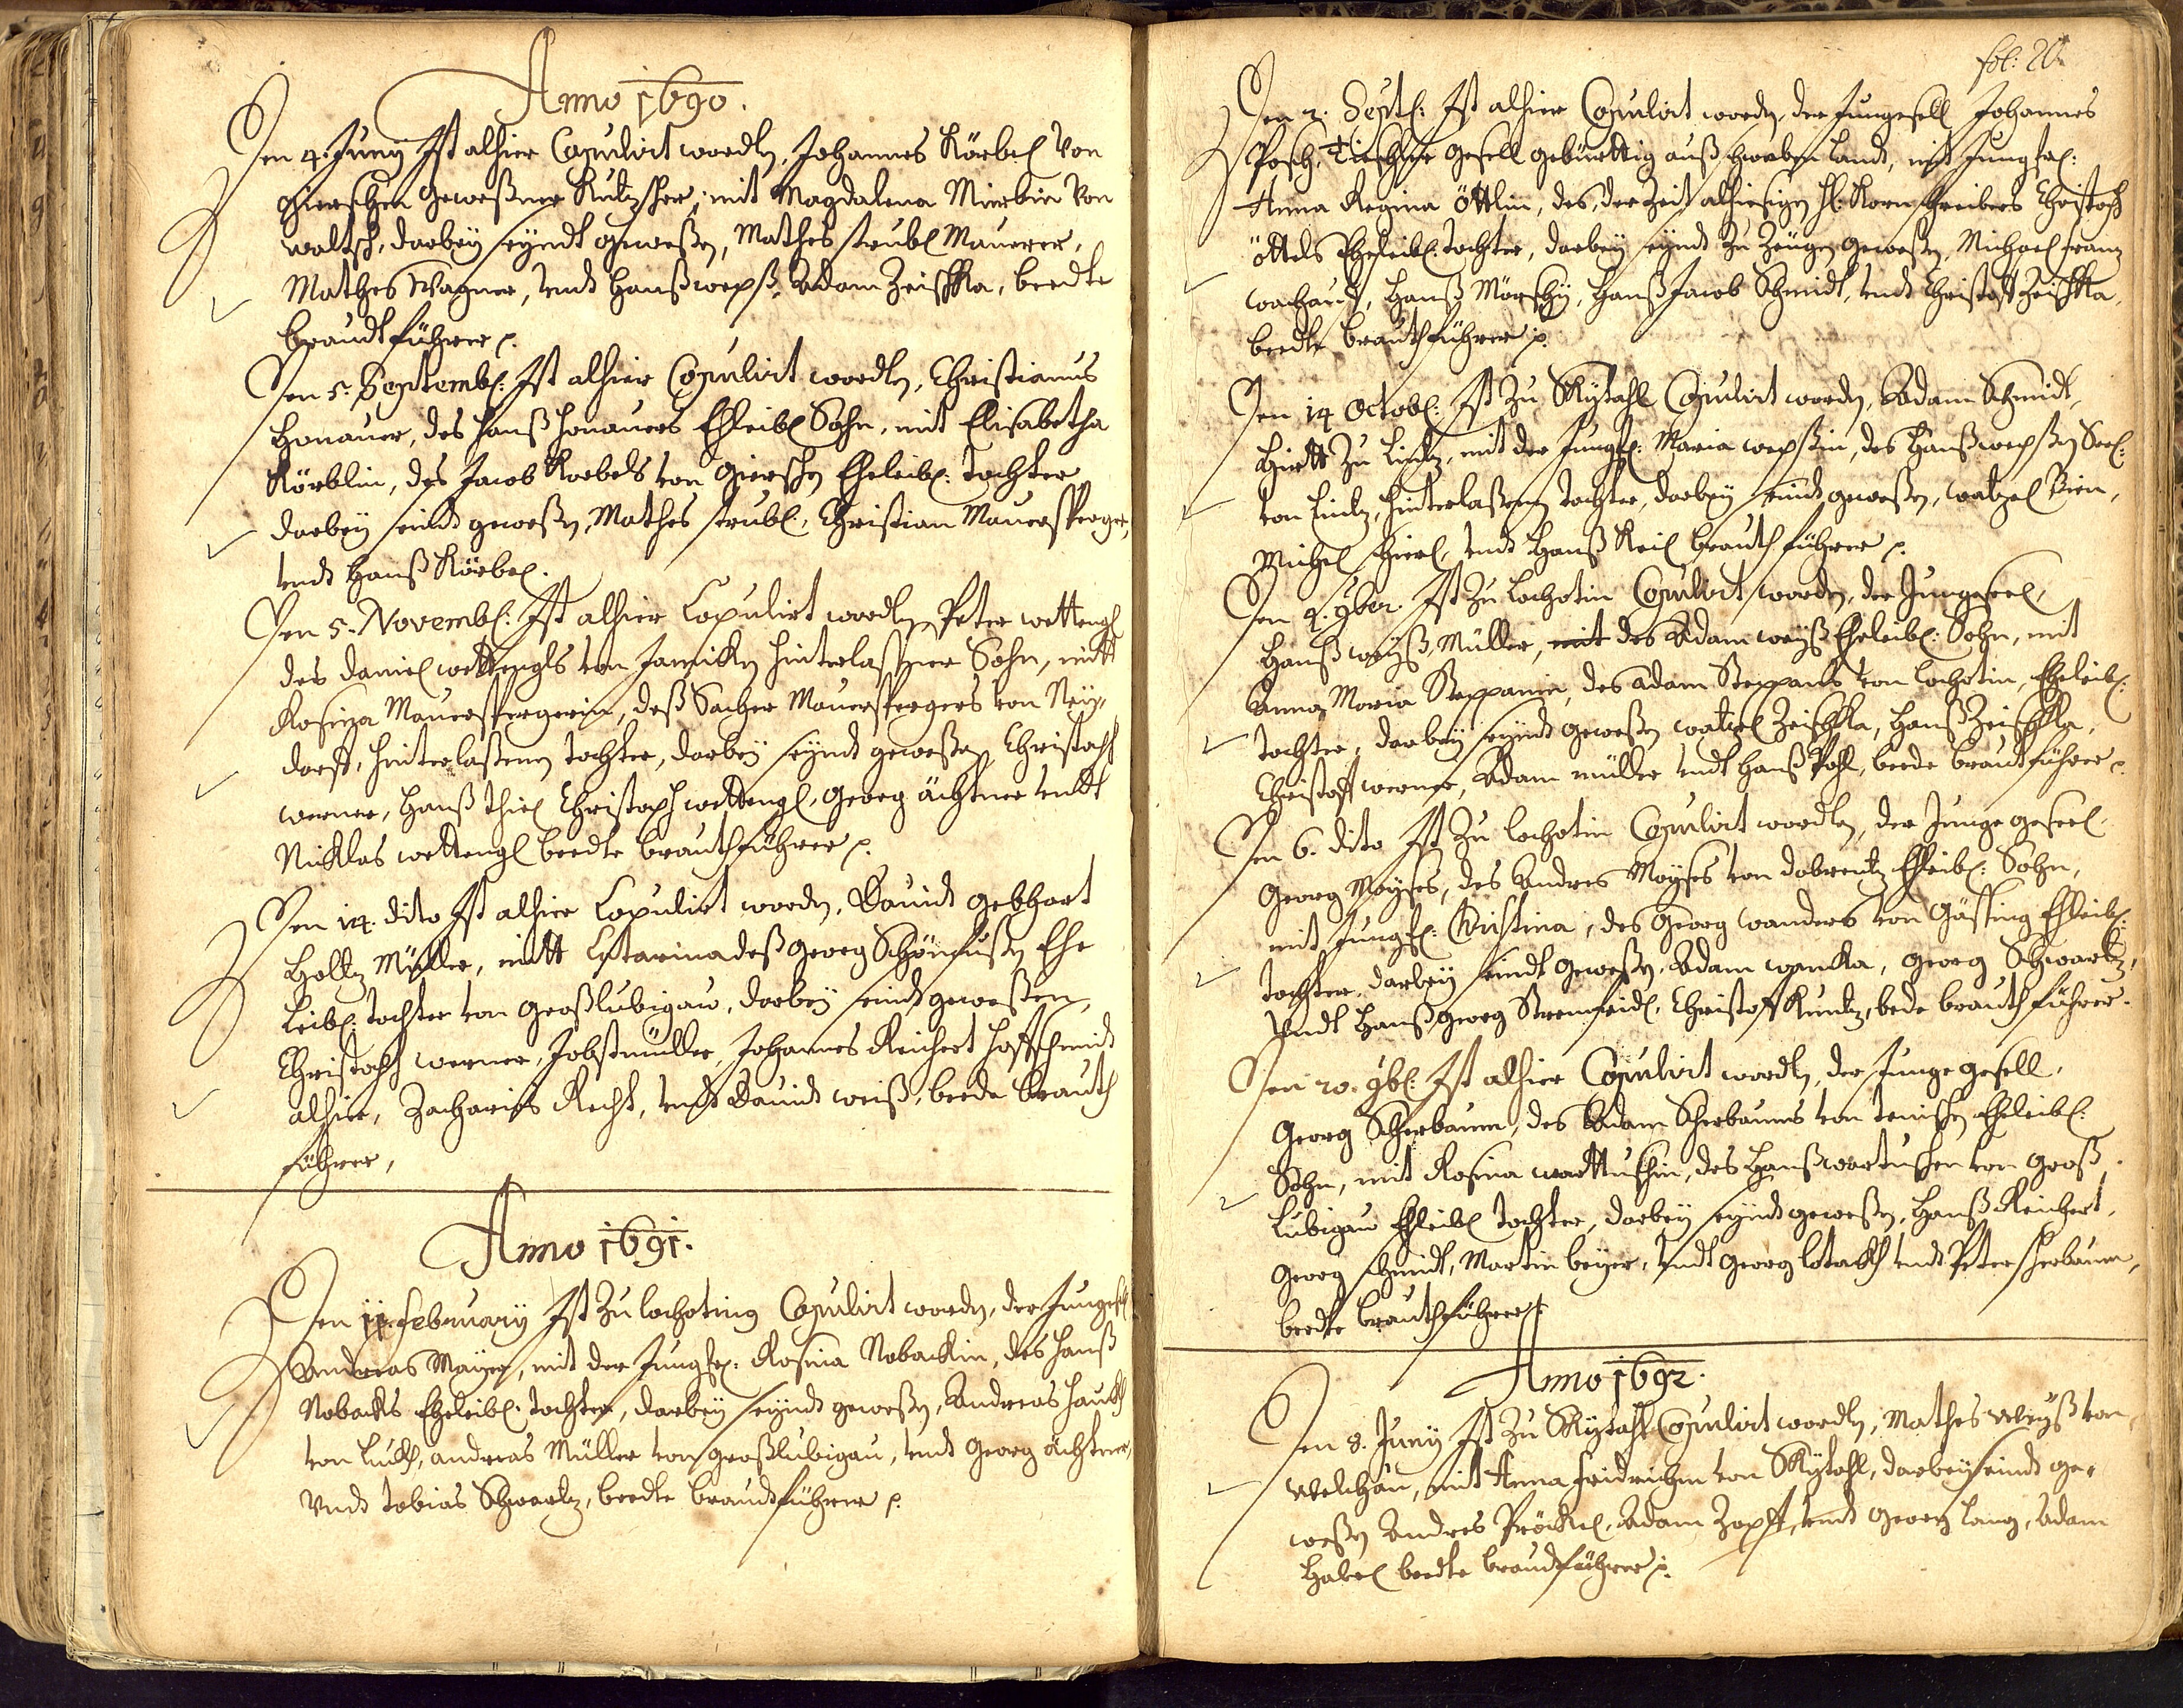 Anno 1690.
Den 4. Juny Ist alhier Copulirt wordten, Johannes Körbel Von
Gierschen Geweßner Kutzscher, mit Magdalena Mierbin Von
waltsch, darbey seyndt geweßen, Mathes strubl Maurer,
Mathes Wagner, Undt Hanß wepß, Adam Zeischka, beedte
brauthführer p.
Den 5. Septembl: Ist alhier Copulirt wordten, Christianus
Honauer, des Hanß Honauers Ehleibl Sohn, mit Elisabetha
Körblin, des Jacob Korbels von Gierschen Eheleibl: tochter
darbey seindt geweßen, Mathes strubl, Christian Mauersperger,
undt Hanß Körbel.
Den 5. Novembl: Ist alhier Copulirt wordten, Peter wettengl
des Daniel wettengls von Jamiken hinterlaßner Sohn, mitt
Rosina Mauerspergerin, deß Mauerspergers von Ney-
dorff, hinterlaßenen tochter, darbey seyndt geweßen, Christoff
werner, Hanß thiel Christoph wettengl, Georg ächtner undt
Nicklas wettengl beedte brauthführer p.
Den 14. dito Ist alhier Copulirt worden, Dauidt gebhart
Holtz Müller, mitt Catarina deß Georg Schönfußen Ehe
leibl: tochter von Großlubigau, darbey seindt geweßen,
Christoff werner, Jobst müller, Johannes Reichert Hoffschmidt
alhier, Zacharias Recht, undt Dauidt weiß, beede brauth
führer,
Anno 1691.
Den 11. February Ist Zu lochoting Copulirt worden, der Jungesell
Andreas Mayer, mit der Jungfr: Rosina Nobackin, des Hanß
Nobacks Eheleibl. tochter, darbey seyndt geweßen, Andreas
von Luck, andreas Müller von großlubigau, undt Georg ächtner,
Undt tobias Schwartz, beedte brauthführer p.
fol: 20.
Den 2. Septl: Ist alhier Copulirt worden, der Jungesell Johannes
Posch, Tischler gesell gebürttig auß schwaben landt, mit Jungfr:
Anna Regina Öttlin, des, der Zeit alhiesigen Hl: Korn schreibers Christoff
öttels Eheleibl: tochter, darbey seyndt zu Zeugen geweßen, Michael franz
Hanß Mörschy, Hanß Jacob Schmidt, undt Christoff Zeischka,
beedte brauthführer p.
Den 14 Octobl: Ist Zu Skytahl Copulirt worden, Adam Schmidt,
Hirtt Zu Lintz, mit der Jungfr: Maria wepßin, des Hanß wepßen Seel:
von Lintz, hinterlaßenen tochter, darbey seindt geweßen, watzel
Michel undt Hanß Keil brauth führer p.
Den 4. 9ber. Ist Zu Lochotin Copulirt worden, der Jungeseel,
Hanß weyß, Müller, mit des Adam weyß Eheleibl: Sohn, mit
Anna Maria Steppanin, des Adam Steppans von Lochotin, Eheleibl:
tochter, darbey seyndt geweßen watzel Zeischka, Hanß Zeischka,
Christoff werner, Adam müller undt Hanß Pohl, beede brautführer p.
Den 6. dito Ist Zu lochotin Copulirt wordten, der Junge geseel
Georg Moyses, des Andres Moyses von dobrentz Ehleibl: Sohn,
mit Jungfr: Christina, des Georg wanders von Gäßing Ehleibl:
tochter, darbey seindt geweßen, Adam wanka, Georg Schwartz,
Undt Hanß Georg Christoff Kuntz, bede brauth führer.
Den 20. 9bl: Ist alhier Copulirt wordten, der Junge gesell,
Georg Scherbaum, des Adam Scherbaums von Eheleibl:
Sohn, mit Rosina warttuschin, des Hanß wartuschen von Groß
Lubigau Ehleibl tochter, darbey seyndt geweßen, Hanß Reichert,
Georg schmidt, Martin beyer, undt Georg undt Peter scherbaum,
beedte brauthführer
Anno 1692.
Den 8. Juny Ist Zu Skytahl Copulirt wordten, Mathes Weyß von
Welchau, mit Anna fridrichin von Skytahl, darbey seindt ge-
weßen Andres Pröckel, Adam Zapff, undt Georg lang, Adam
Habel beedte brauthführer p.